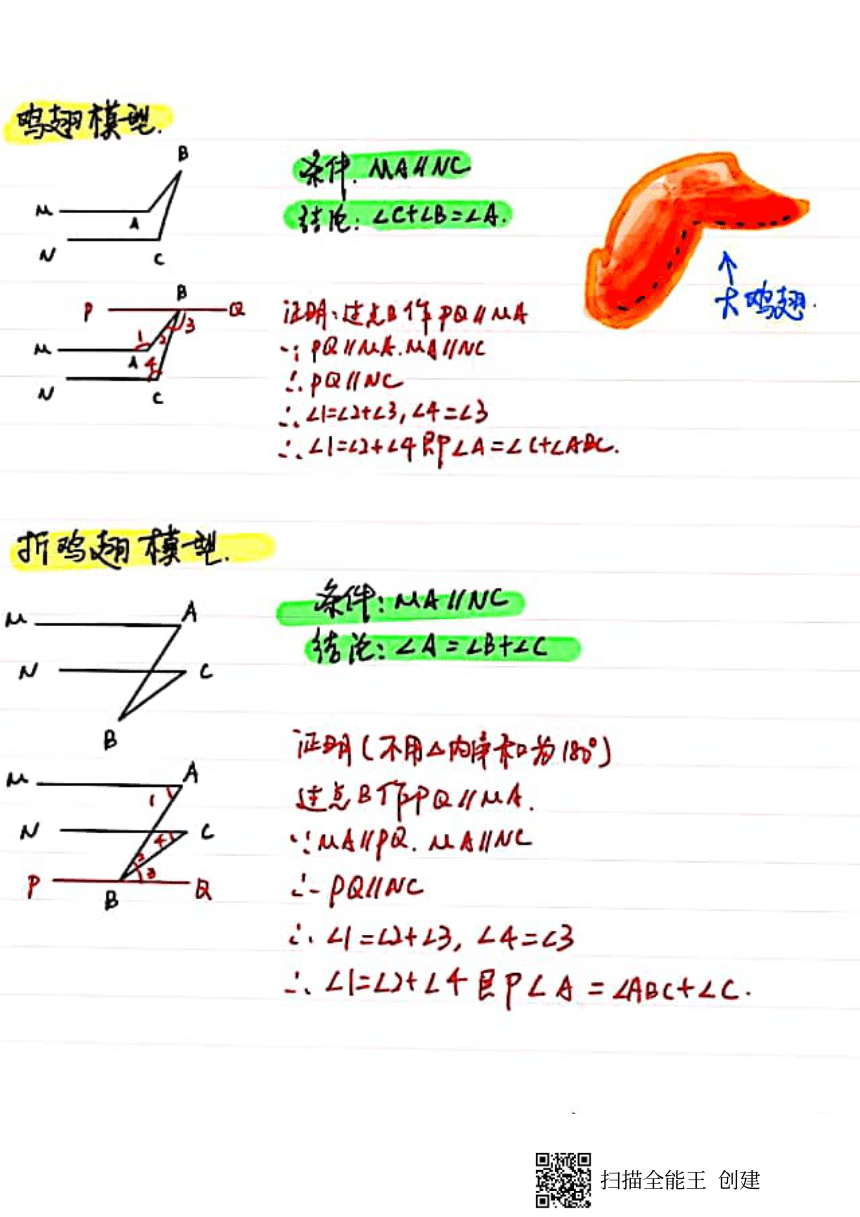 鸡翅模型.
B
条件. MA∥NC
M
A
结论: ∠C+∠B=∠A.
N
C
大鸡翅.
P
B
Q
证明: 过点B作PQ∥MA
1
2
3
M
A
4
∵ PQ∥MA. MA∥NC
N
C
∴ PQ∥NC
∴ ∠1=∠2+∠3, ∠4=∠3
∴ ∠1=∠2+∠4 即∠A=∠C+∠ABC.
折鸡翅模型.
条件: MA∥NC
M
A
结论: ∠A=∠B+∠C
N
C
B
证明(不用△内角和为180°)
M
A
1
过点B作PQ∥MA.
N
C
4
∵ MA∥PQ. MA∥NC
2
3
P
B
Q
∴ PQ∥NC
∴ ∠1=∠2+∠3, ∠4=∠3
∴ ∠1=∠2+∠4 即∠A=∠ABC+∠C.
扫描全能王 创建